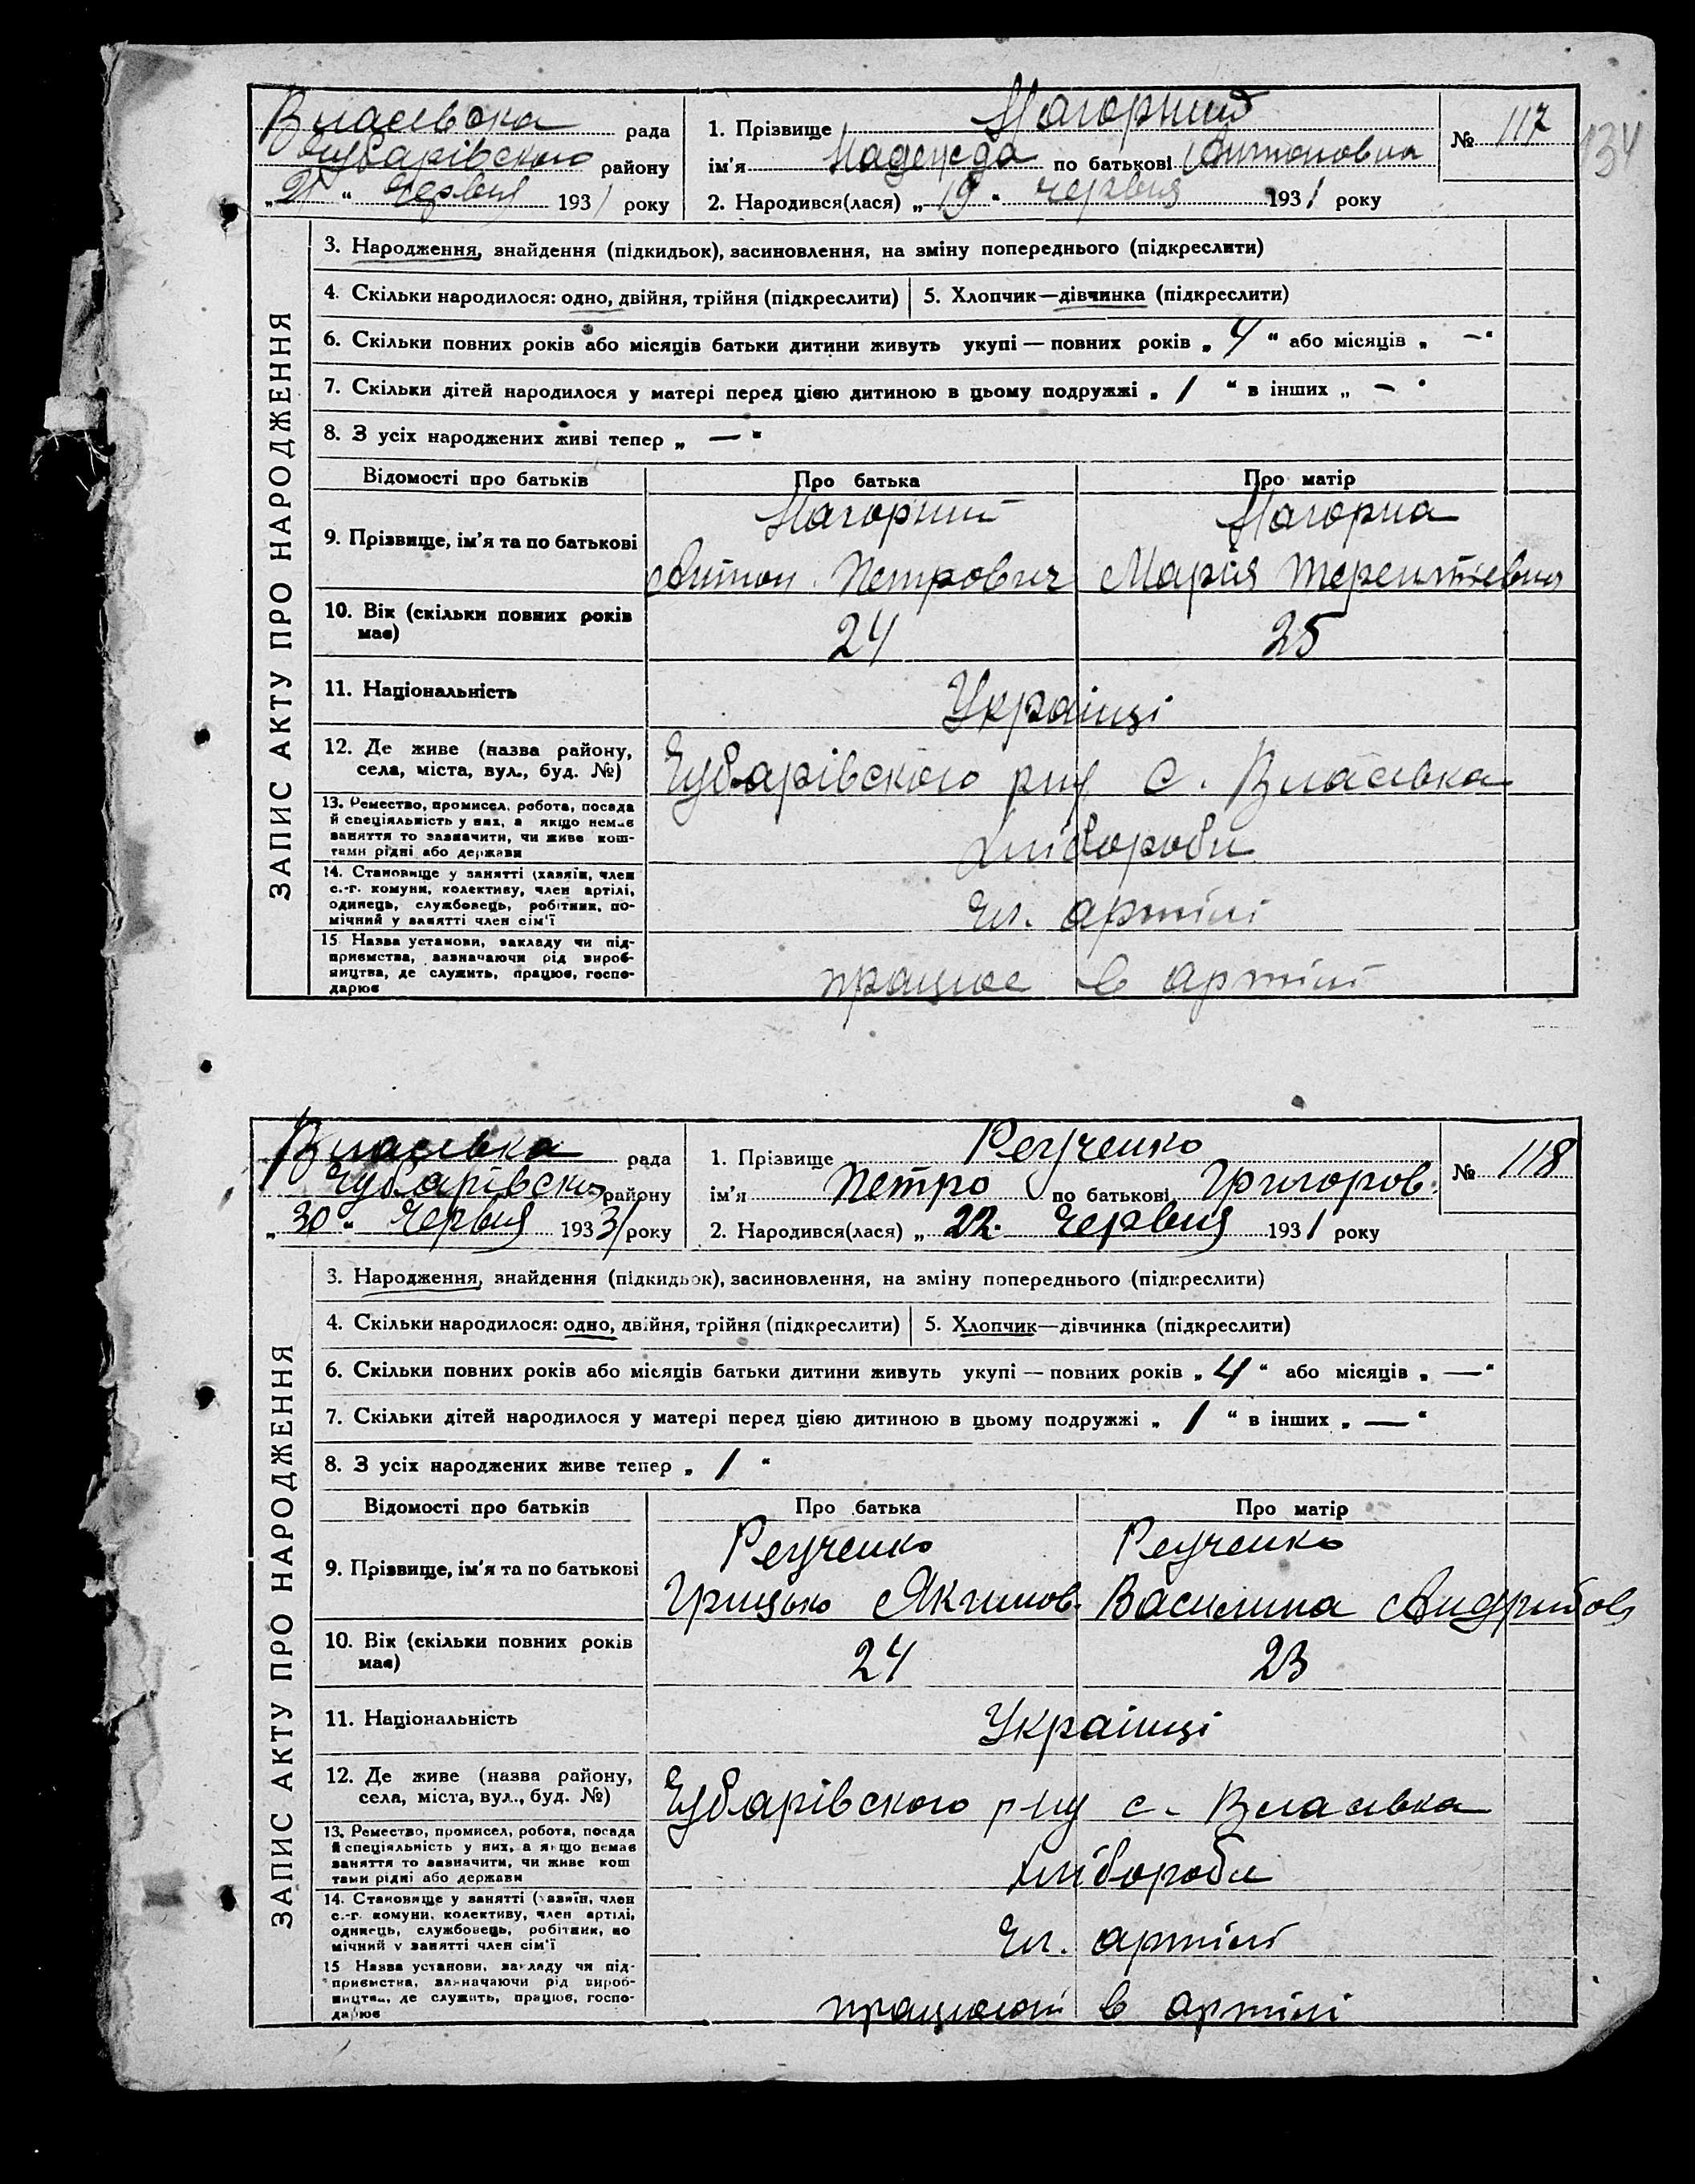 134
Власівска рада
Чубарівского району
„21“ Червня 1931 року
1. Прізвище Нагорний
ім'я Надежда по батькові Антоновна
2. Народився(лася) „19“ червня 1931 року
№ 117
ЗАПИС АКТУ ПРО НАРОДЖЕННЯ
3. Народження, знайдення (підкидьок), засиновлення, на зміну попереднього (підкреслити)
4. Скільки народилося: одно, двійня, трійня (підкреслити) 5. Хлопчик—дівчинка (підкреслити)
6. Скільки повних років або місяців батьки дитини живуть укупі — повних років „ 4 “ або місяців „ — “
7. Скільки дітей народилося у матері перед цією дитиною в цьому подружжі „ 1 “ в інших „ — “
8. З усіх народжених живі тепер „ — “
Відомості про батьків Про батька Про матір
9. Прізвище, ім'я та по батькові
Нагорний Нагорна
Антон Петрович Марія Терентіевна
10. Вік (скільки повних років має) 24 25
11. Національність Українці
12. Де живе (назва району, села, міста, вул., буд. №) Чубарівского р-ну с. Власівка
13. Ремество, промисел, робота, посада
й спеціяльність у них, а якщо немає
заняття то зазначити, чи живе кош-
тами рідні або держави
хлібороби
14. Становище у занятті (хазяїн, член
с.-г. комуни, колективу, член артілі,
одинець, службовець, робітник, по-
мічний у занятті член сім'ї
Чл. артілі
15 Назва установи, закладу чи під-
приємства, зазначаючи рід вироб-
ництва, де служить, працює, госпо-
дарює
працює в артілі
Власівка рада
Чубарівско району
„30“ Червня 1931 року
1. Прізвище Реученко
ім'я Петро по батькові Григоров.
2. Народився(лася) „22. Червня 1931 року
№ 118
ЗАПИС АКТУ ПРО НАРОДЖЕННЯ
3. Народження, знайдення (підкидьок), засиновлення, на зміну попереднього (підкреслити)
4. Скільки народилося: одно, двійня, трійня (підкреслити) 5. Хлопчик—дівчинка (підкреслити)
6. Скільки повних років або місяців батьки дитини живуть укупі — повних років „ 4 “ або місяців „ — “
7. Скільки дітей народилося у матері перед цією дитиною в цьому подружжі „ 1 “ в інших „ — “
8. З усіх народжених живе тепер „ 1 “
Відомості про батьків Про батька Про матір
9. Прізвище, ім'я та по батькові
Реученко Реученко
Грицько Якимов. Василина
10. Вік (скільки повних років має) 24 23
11. Національність Українці
12. Де живе (назва району, села, міста, вул., буд. №) Чубарівского р-ну с. Власівка
13. Ремество, промисел, робота, посада
й спеціяльність у них, а якщо немає
заняття то зазначити, чи живе кош
тами рідні або держави
хлібороби
14. Становище у занятті (хазяїн, член
с.-г. комуни, колективу, член артілі,
одинець, службовець, робітник, по
мічний у занятті член сім'ї
Чл. артілі
15 Назва установи, закладу чи під-
приємства, зазначаючи рід вироб-
ництва, де служить, працює, госпо-
дарює
працюють в артілі